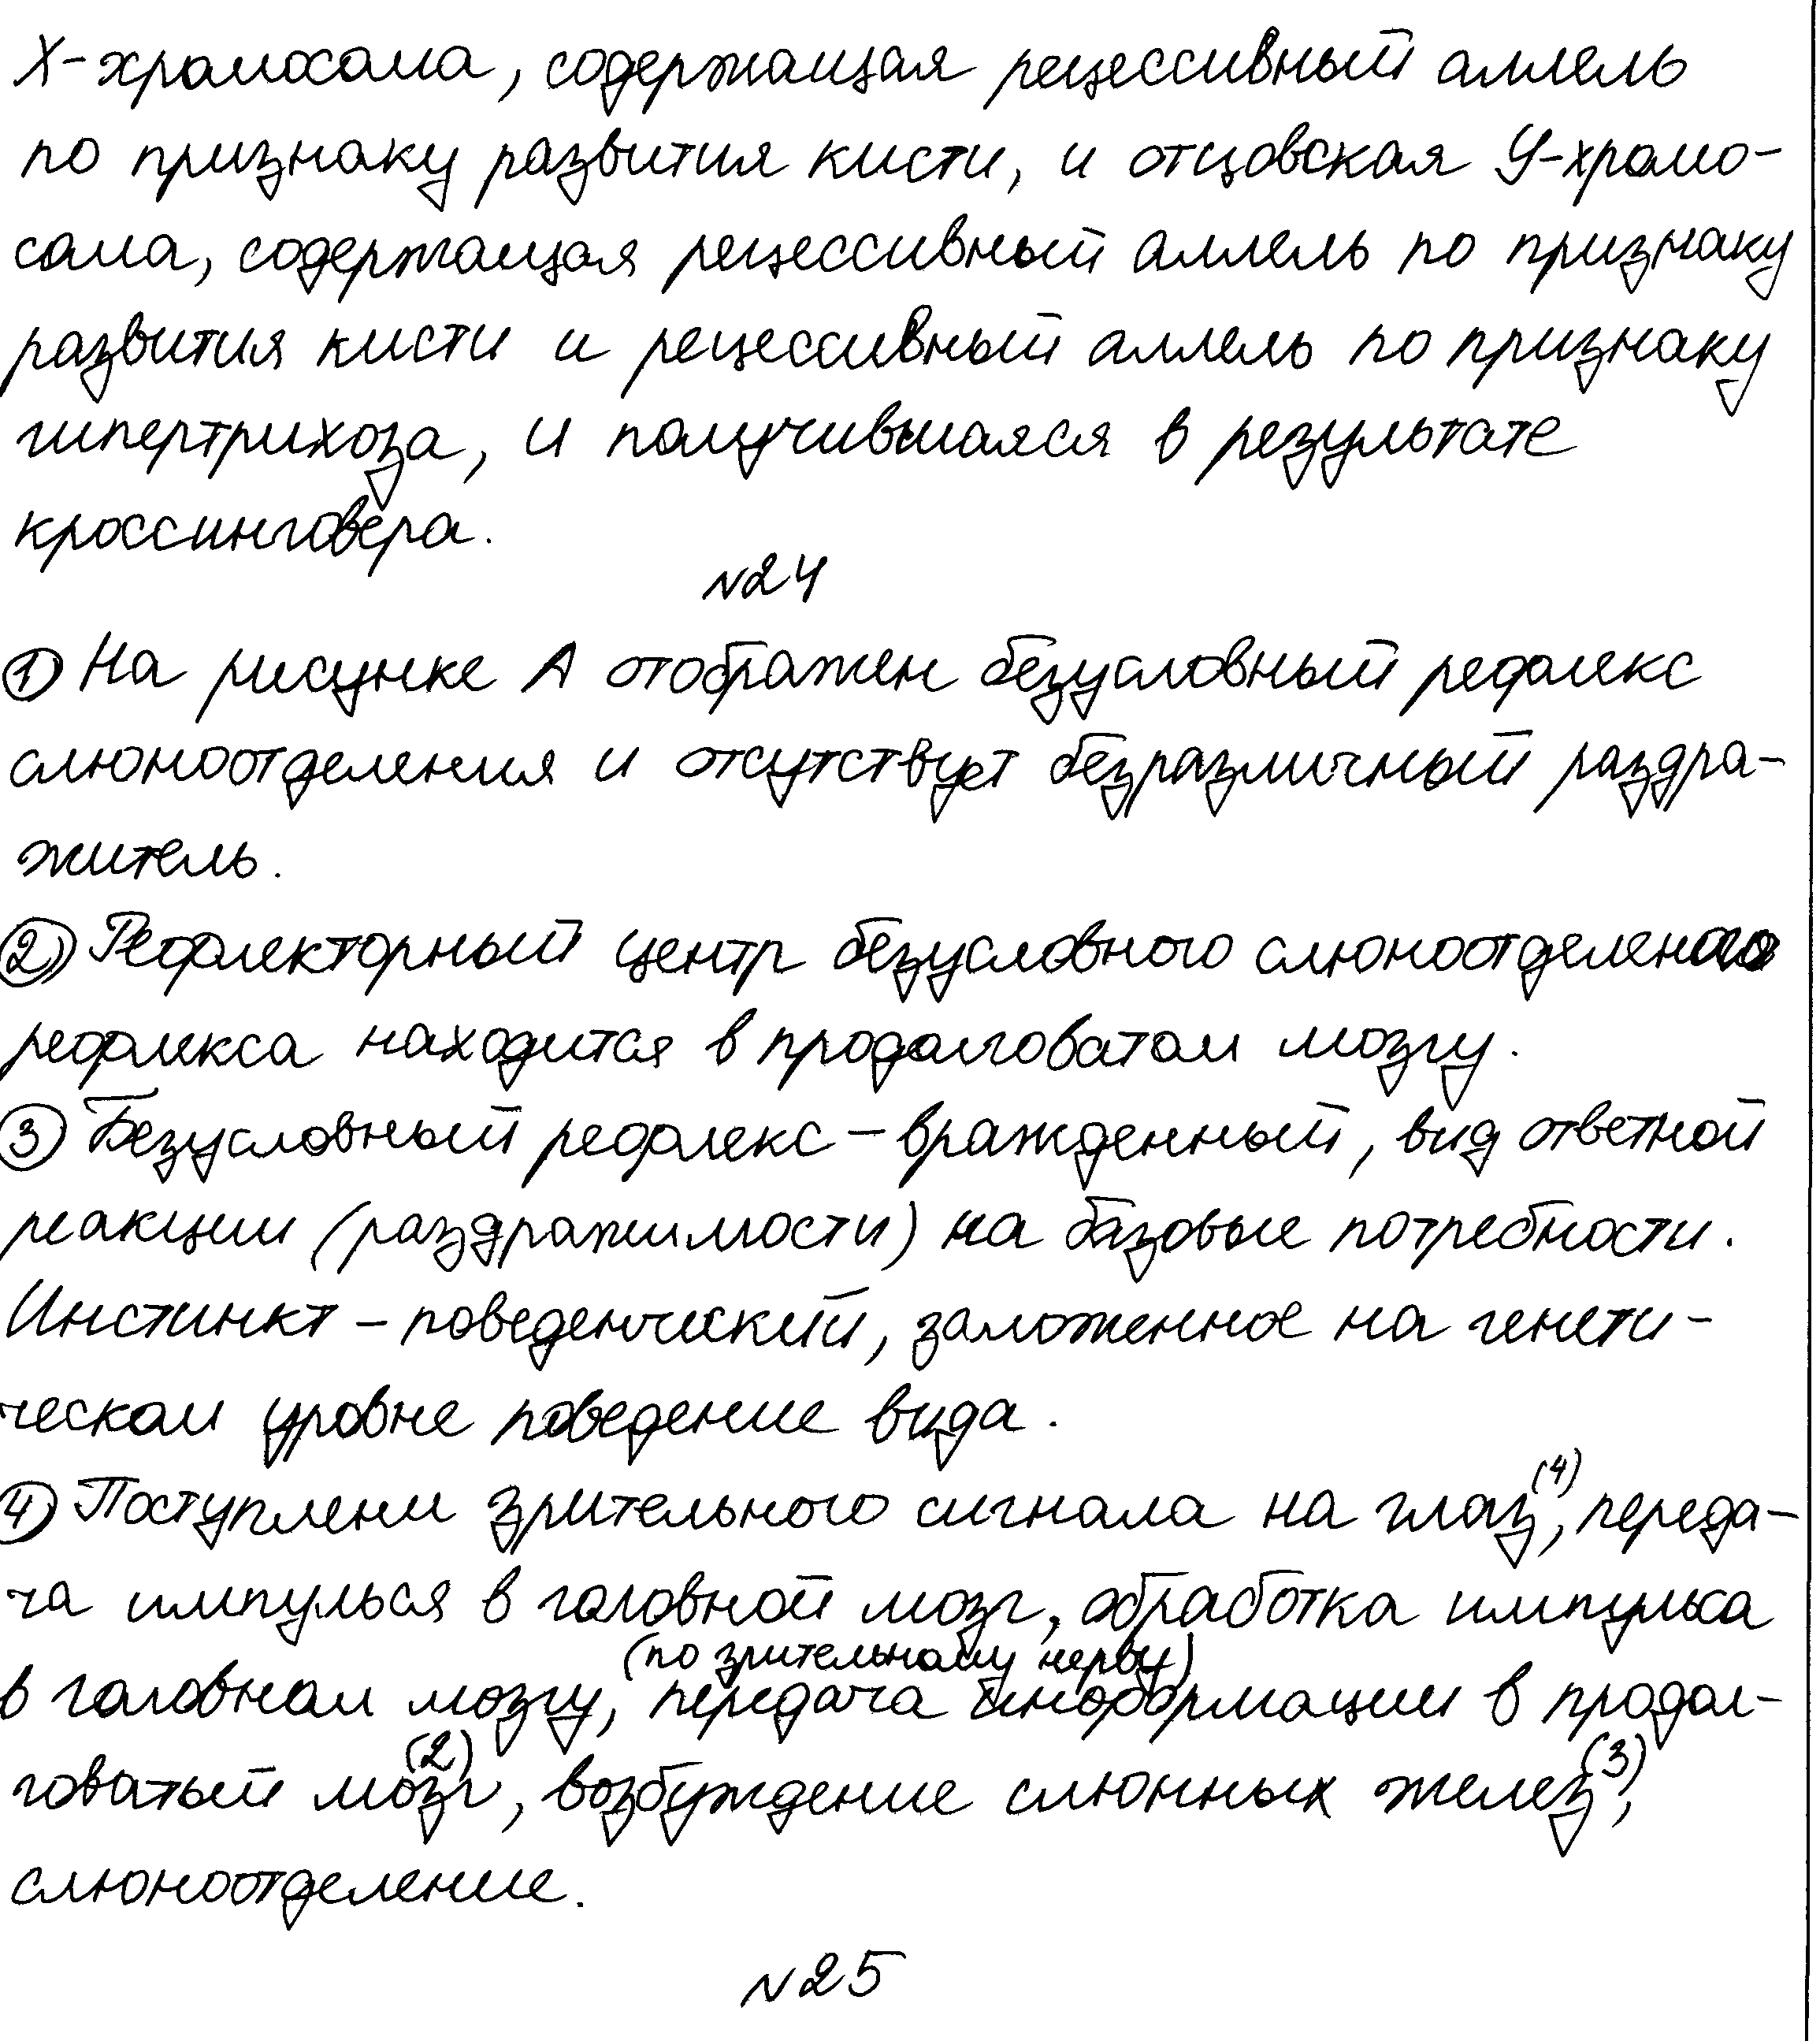 Х-хромосома, содержащая рецессивный аллель
по признаку развития кисти, и отцовская У-хромо-
сома, содержащая рецессивный аллель по признаку
развития кисти и рецессивный аллель по признаку
гипертрихоза, и получившаяся в результате
кроссинговера.
№24
① На рисунке А отображен безусловный рефлекс
слюноотделения и отсутствует безразличный раздра-
житель.
② Рефлекторный центр безусловного
рефлекса находится в продолговатом мозгу.
③ Безусловный рефлекс – вражденный, вид ответной
реакции (раздражимости) на базовые потребности.
Инстинкт – поведенческий, заложенное на генети-
ческом уровне поведение вида.
④ Поступлени зрительного сигнала на глаз(4), переда-
ча импулься в головной мозг, обработка импульса
(по зрительному нерву)
в головном мозгу, передача информации в продол-
говатый мозг(2), возбуждение слюнных желез(3),
слюноотделение.
№25